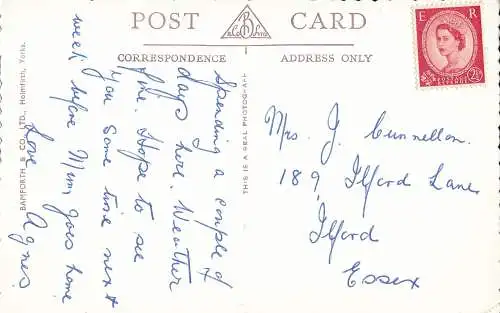 POST CARD
CORRESPONDENCE
ADDRESS ONLY
BAMFORTH & CO., LTD., Holmfirth, Yorks.
THIS IS A REAL PHOTOGRAPH
E R
2½D
Spending a couple of
days here. Weather
fine. Hope to see
you some time next
week before Mum goes home
Love Agnes
Mrs. J. Cunnellon.
189, Ilford Lane
Ilford
Essex